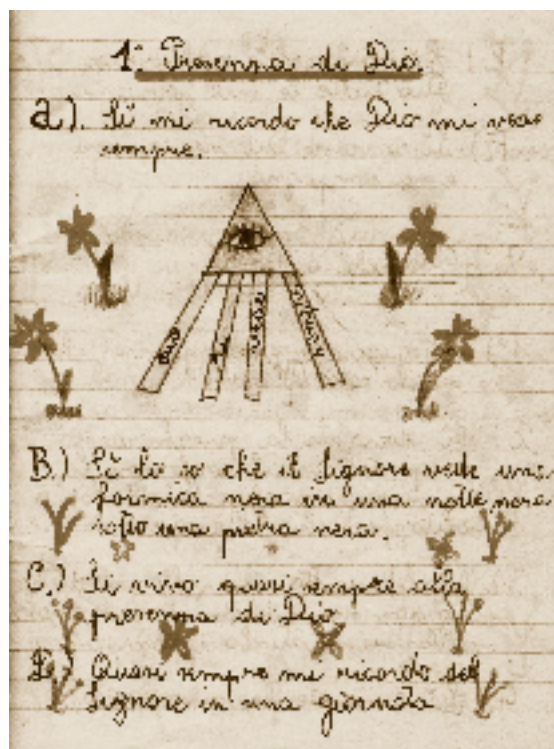 1° Presenza di Dio
a). Sì mi ricordo che Dio mi vede
sempre.
Dio ti vede
B.) Sì lo so che il Signore vede una
formica nera in una notte nera
sotto una pietra nera.
C.) Si vivo quasi sempre alla
presenza di Dio.
D.) Quasi sempre mi ricordo del
Signore in una giornata